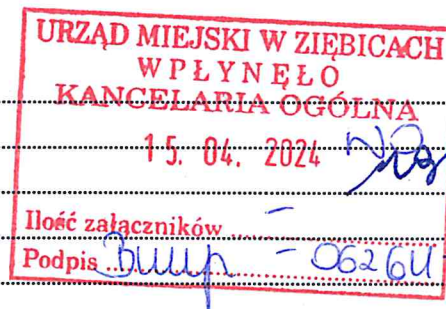 URZĄD MIEJSKI W ZIĘBICACH
WPŁYNĘŁO
KANCELARIA OGÓLNA
15. 04. 2024
Ilość załączników ....... -
Podpis